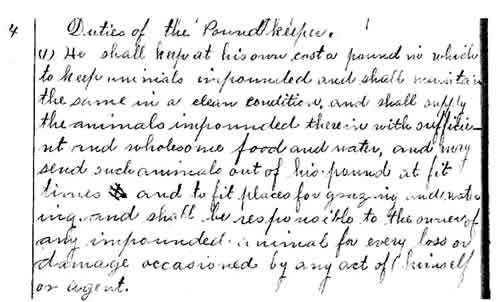 4 Duties of the Pound keeper.
(1) He shall keep at his own cost a pound in which
to keep animals impounded and shall maintain
the same in a clean condition, and shall supply
the animals impounded therein with sufficie-
nt and wholesome food and water, and may
send such animals out of his pound at fit
times and to fit places for grazing and water
ing. and shall be responsible to the owner of
any impounded animal for every loss or
damage occasioned by any act of himself
or agent.